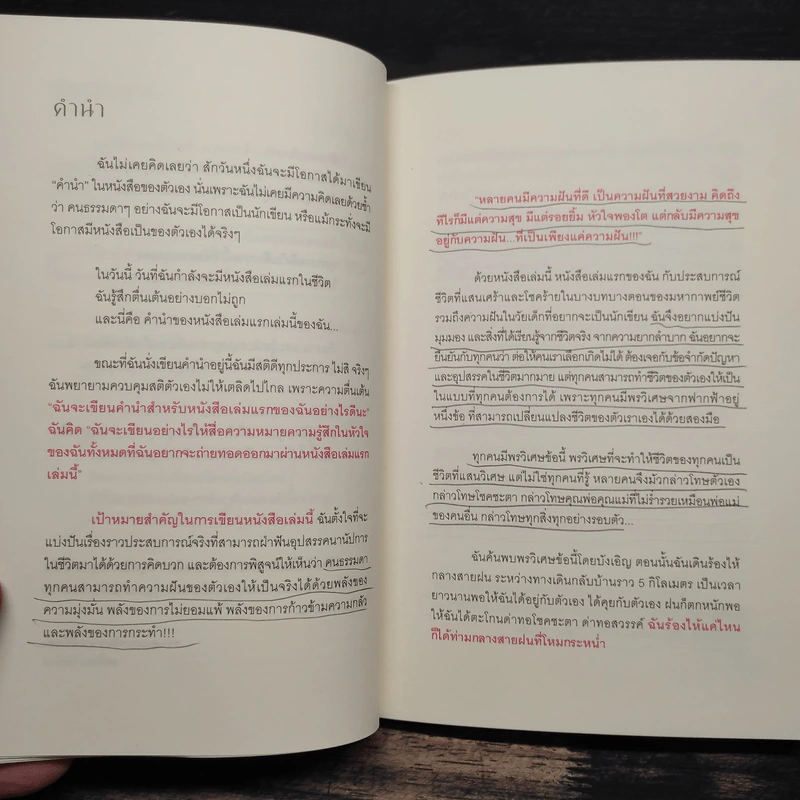 คำนำ
ฉันไม่เคยคิดเลยว่า สักวันหนึ่งฉันจะมีโอกาสได้มาเขียน
"คำนำ" ในหนังสือของตัวเอง นั่นเพราะฉันไม่เคยมีความคิดเลยด้วยซ้ำ
ว่า คนธรรมดาๆ อย่างฉันจะมีโอกาสเป็นนักเขียน หรือแม้กระทั่งจะมี
โอกาสมีหนังสือเป็นของตัวเองได้จริงๆ
ในวันนี้ วันที่ฉันกำลังจะมีหนังสือเล่มแรกในชีวิต
ฉันรู้สึกตื่นเต้นอย่างบอกไม่ถูก
และนี่คือ คำนำของหนังสือเล่มแรกเล่มนี้ของฉัน...
ขณะที่ฉันนั่งเขียนคำนำอยู่นี้ฉันมีสติดีทุกประการ ไม่สิ จริงๆ
ฉันพยายามควบคุมสติตัวเองไม่ให้เตลิดไปไกล เพราะความตื่นเต้น
"ฉันจะเขียนคำนำสำหรับหนังสือเล่มแรกของฉันอย่างไรดีนะ"
ฉันคิด "ฉันจะเขียนอย่างไรให้สื่อความหมายความรู้สึกในหัวใจ
ของฉันทั้งหมดที่ฉันอยากจะถ่ายทอดออกมาผ่านหนังสือเล่มแรก
เล่มนี้"
เป้าหมายสำคัญในการเขียนหนังสือเล่มนี้ ฉันตั้งใจที่จะ
แบ่งปันเรื่องราวประสบการณ์จริงที่สามารถฝ่าฟันอุปสรรคนานัปการ
ในชีวิตมาได้ด้วยการคิดบวก และต้องการพิสูจน์ให้เห็นว่า คนธรรมดา
ทุกคนสามารถทำความฝันของตัวเองให้เป็นจริงได้ด้วยพลังของ
ความมุ่งมั่น พลังของการไม่ยอมแพ้ พลังของการก้าวข้ามความกลัว
และพลังของการกระทำ!!!
"หลายคนมีความฝันที่ดี เป็นความฝันที่สวยงาม คิดถึง
ทีไรก็มีแต่ความสุข มีแต่รอยยิ้ม หัวใจพองโต แต่กลับมีความสุข
อยู่กับความฝัน...ที่เป็นเพียงแค่ความฝัน!!!"
ด้วยหนังสือเล่มนี้ หนังสือเล่มแรกของฉัน กับประสบการณ์
ชีวิตที่แสนเศร้าและโชคร้ายในบางบทบางตอนของมหากาพย์ชีวิต
รวมถึงความฝันในวัยเด็กที่อยากจะเป็นนักเขียน ฉันจึงอยากแบ่งปัน
มุมมอง และสิ่งที่ได้เรียนรู้จากชีวิตจริง จากความยากลำบาก ฉันอยากจะ
ยืนยันกับทุกคนว่า ต่อให้คนเราเลือกเกิดไม่ได้ ต้องเจอกับข้อจำกัดปัญหา
และอุปสรรคในชีวิตมากมาย แต่ทุกคนสามารถทำชีวิตของตัวเองให้เป็น
ในแบบที่ทุกคนต้องการได้ เพราะทุกคนมีพรวิเศษจากฟากฟ้าอยู่
หนึ่งข้อ ที่สามารถเปลี่ยนแปลงชีวิตของตัวเราเองได้ด้วยสองมือ
ทุกคนมีพรวิเศษข้อนี้ พรวิเศษที่จะทำให้ชีวิตของทุกคนเป็น
ชีวิตที่แสนวิเศษ แต่ไม่ใช่ทุกคนที่รู้ หลายคนจึงมัวกล่าวโทษตัวเอง
กล่าวโทษโชคชะตา กล่าวโทษคุณพ่อคุณแม่ที่ไม่ร่ำรวยเหมือนพ่อแม่
ของคนอื่น กล่าวโทษทุกสิ่งทุกอย่างรอบตัว...
ฉันค้นพบพรวิเศษข้อนี้โดยบังเอิญ ตอนนั้นฉันเดินร้องไห้
กลางสายฝน ระหว่างทางเดินกลับบ้านราว 5 กิโลเมตร เป็นเวลา
ยาวนานพอให้ฉันได้อยู่กับตัวเอง ได้คุยกับตัวเอง ฝนก็ตกหนักพอ
ให้ฉันได้ตะโกนด่าทอโชคชะตา ด่าทอสวรรค์ ฉันร้องไห้แค่ไหน
ก็ได้ท่ามกลางสายฝนที่โหมกระหน่ำ